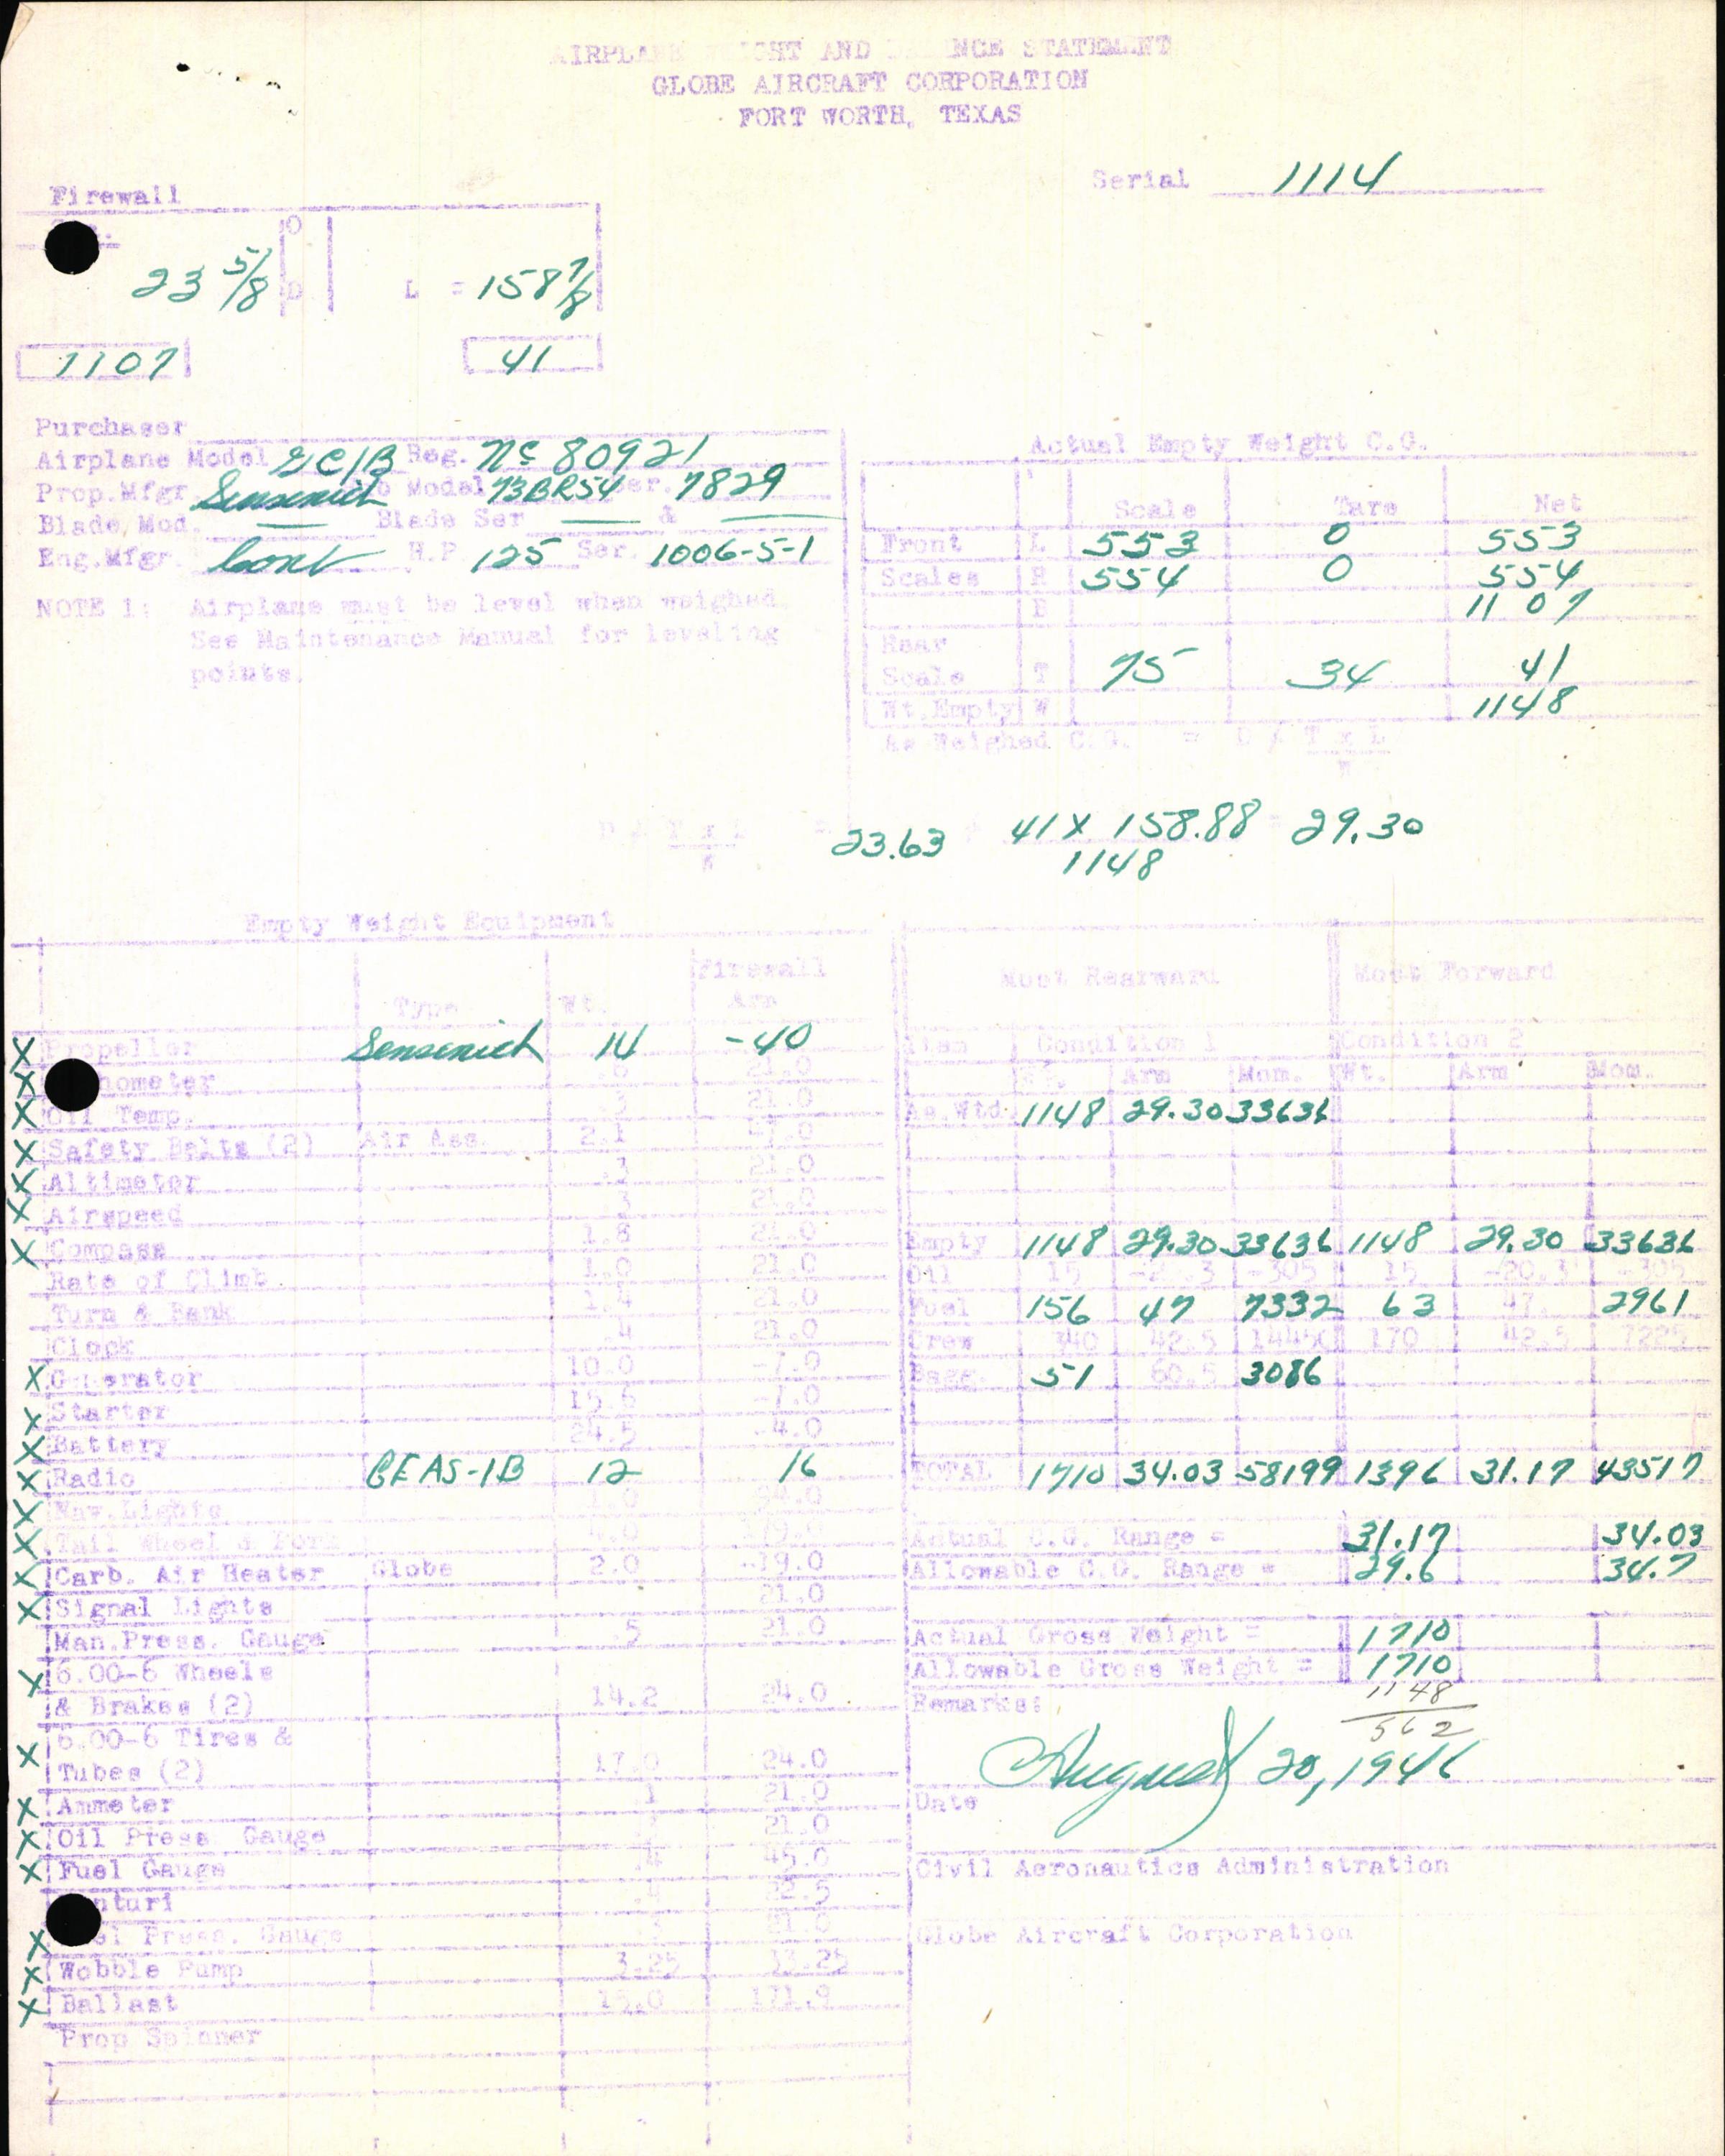 AIRPLANE WEIGHT AND BALANCE STATEMENT
GLOBE AIRCRAFT CORPORATION
FORT WORTH, TEXAS
Serial 1114
Firewall
O
23 5/8 D L = 158 7/8
1107 41
Purchaser
Airplane Model GC1B Reg. NC 80921
Prop.Mfgr. Sensenich Model 73BR54 Ser. 7829
Blade Mod. — Blade Ser — & —
Eng.Mfgr. Cont H.P. 125 Ser. 1006-5-1
NOTE 1: Airplane must be level when weighed
See Maintenance Manual for leveling
points.
Actual Empty Weight C.G.
Scale Tare Net
Front L 553 0 553
Scales R 554 0 554
1107
Rear
Scale T 75 34 41
Wt.Empty W 1148
As Weighed C.G. = D / T x L
W
D / T x L = 23.63 41 X 158.88 29.30
W 1148
Empty Weight Equipment
Type Wt. Firewall Arm
X Propeller Sensenich 14 -40
X 21.0
X Oil Temp. .3 21.0
X Safety Belts (2) Air Ass. 2.1
X Altimeter 21.0
X Airspeed .3 21.0
X Compass 1.8 21.0
Rate of Climb 1.0 21.0
Turn & Bank 1.4 21.0
Clock .4 21.0
X Generator 10.0 -7.0
X Starter 15.6 -7.0
X Battery 24.5 -4.0
X Radio GEAS-1B 12 16
X Nav.Lights
X Tail Wheel & Fork
X Carb. Air Heater Globe 2.0 -19.0
X Signal Lights 21.0
Man.Press. Gauge .5 21.0
X 6.00-6 Wheels
& Brakes (2) 14.2 24.0
X 6.00-6 Tires &
Tubes (2) 17.0 24.0
X Ammeter .1 21.0
X Oil Press. Gauge 21.0
X Fuel Gauge .4 45.0
.4
X Press. Gauge
X Wobble Pump 3.25 13.25
X Ballast 15.0 171.9
Prop Spinner
Most Rearward Most Forward
Item Condition 1 Condition 2
Wt. Arm Mom. Wt. Arm Mom.
As Wtd. 1148 29.30 33636
Empty 1148 29.30 33636 1148 29.30 33636
Oil 15 -20.3 -305 15 -20.3 -305
Fuel 156 47 7332 63 47. 2961
Crew 340 42.5 14450 170 42.5 7225
Bagg. 51 60.5 3086
TOTAL 1710 34.03 58199 1396 31.17 43517
Actual C.G. Range = 31.17 34.03
Allowable C.G. Range = 29.6 34.7
Actual Gross Weight = 1710
Allowable Gross Weight = 1710
1148
562
Remarks:
August 20, 1946
Date
Civil Aeronautics Administration
Globe Aircraft Corporation